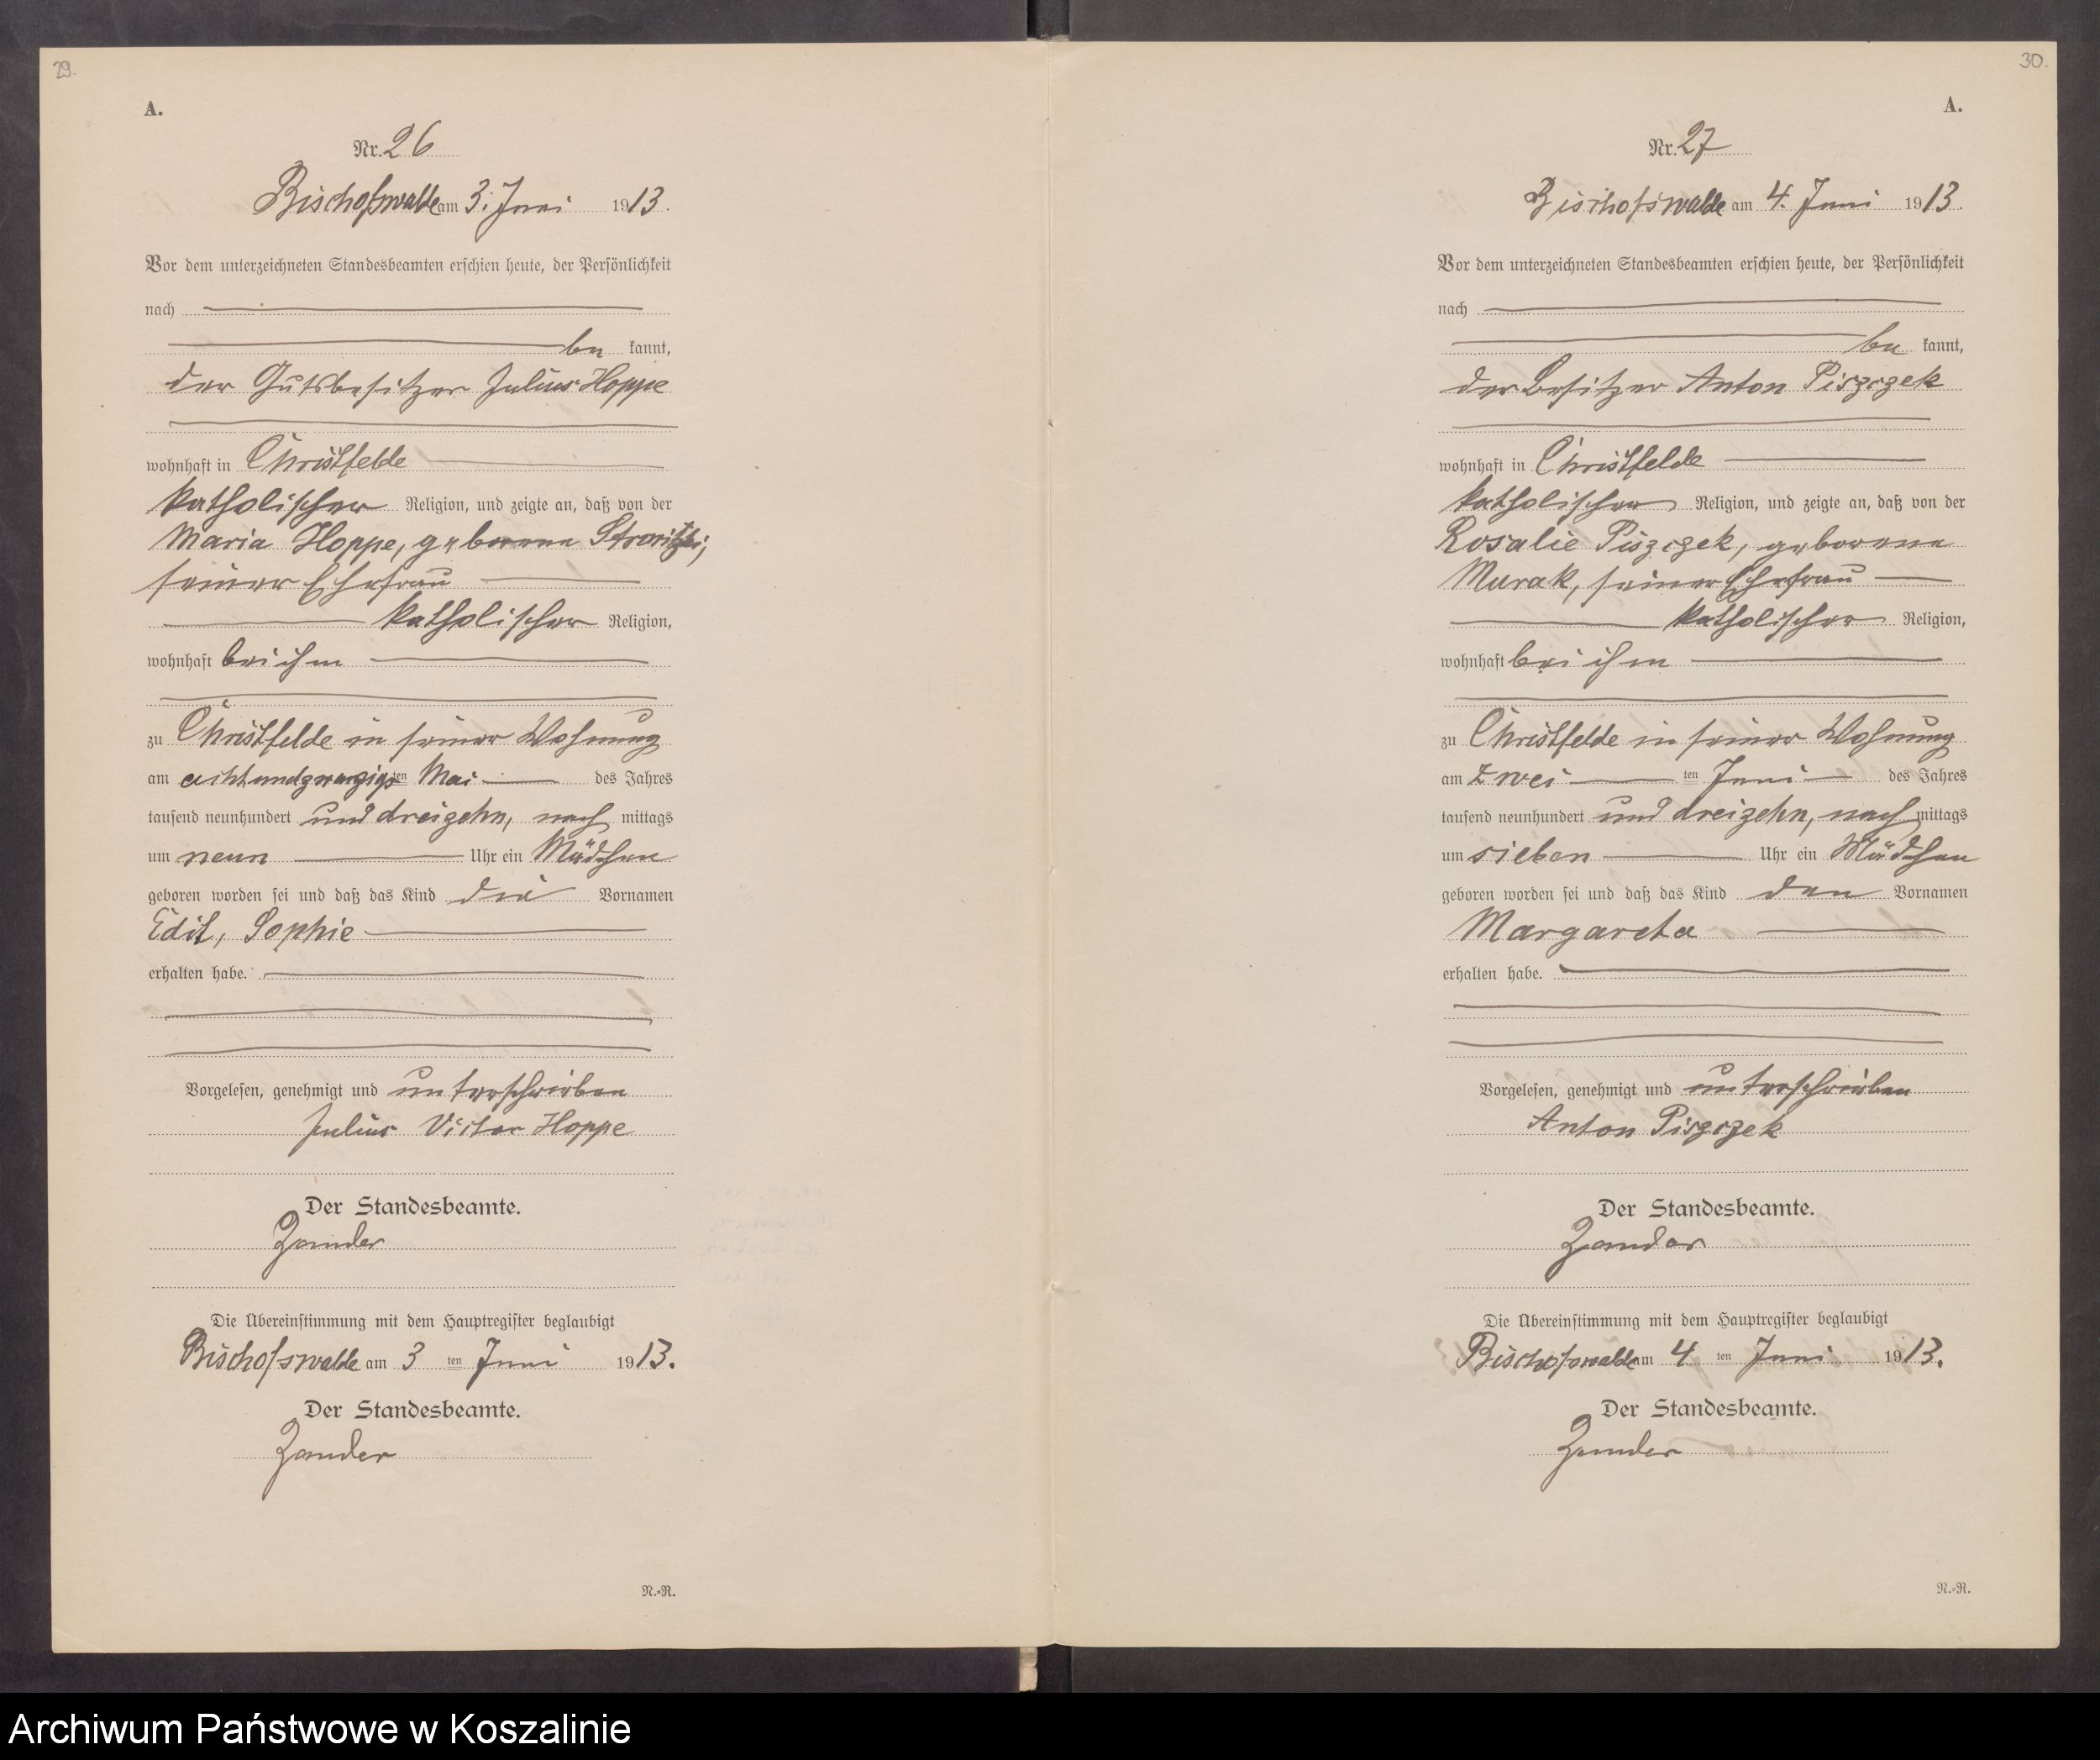 29.
A.
Nr. 26
Bischofswalde am 3. Juni 1913.
Vor dem unterzeichneten Standesbeamten erschien heute, der Persönlichkeit
nach
be kannt,
der Gutsbesitzer Julius Hoppe
wohnhaft in Christfelde
katholischer Religion, und zeigte an, daß von der
Maria Hoppe, geborene
seiner Ehefrau
katholischer Religion,
wohnhaft bei ihm
zu Christfelde in seiner Wohnung
am achtundzwanzigsten Mai des Jahres
tausend neunhundert und dreizehn, nach mittags
um neun Uhr ein Mädchen
geboren worden sei und daß das Kind die Vornamen
Edit, Sophie
erhalten habe.
Vorgelesen, genehmigt und unterschrieben
Julius Victor Hoppe
Der Standesbeamte.
Zander
Die Übereinstimmung mit dem Hauptregister beglaubigt
Bischofswalde am 3 ten Juni 1913.
Der Standesbeamte.
Zander
N.=R.
30.
A.
Nr. 27
Bischofswalde am 4. Juni 1913.
Vor dem unterzeichneten Standesbeamten erschien heute, der Persönlichkeit
nach
be kannt,
der Besitzer Anton Piszczek
wohnhaft in Christfelde
katholischer Religion, und zeigte an, daß von der
Rosalie Piszczek, geborene
Murak, seiner Ehefrau
katholischer Religion,
wohnhaft bei ihm
zu Christfelde in seiner Wohnung
am zwei ten Juni des Jahres
tausend neunhundert und dreizehn, nach mittags
um sieben Uhr ein Mädchen
geboren worden sei und daß das Kind den Vornamen
Margareta
erhalten habe.
Vorgelesen, genehmigt und unterschrieben
Anton Piszczek
Der Standesbeamte.
Zander
Die Übereinstimmung mit dem Hauptregister beglaubigt
Bischofswalde am 4 ten Juni 1913.
Der Standesbeamte.
Zander
N.=R.
Archiwum Państwowe w Koszalinie